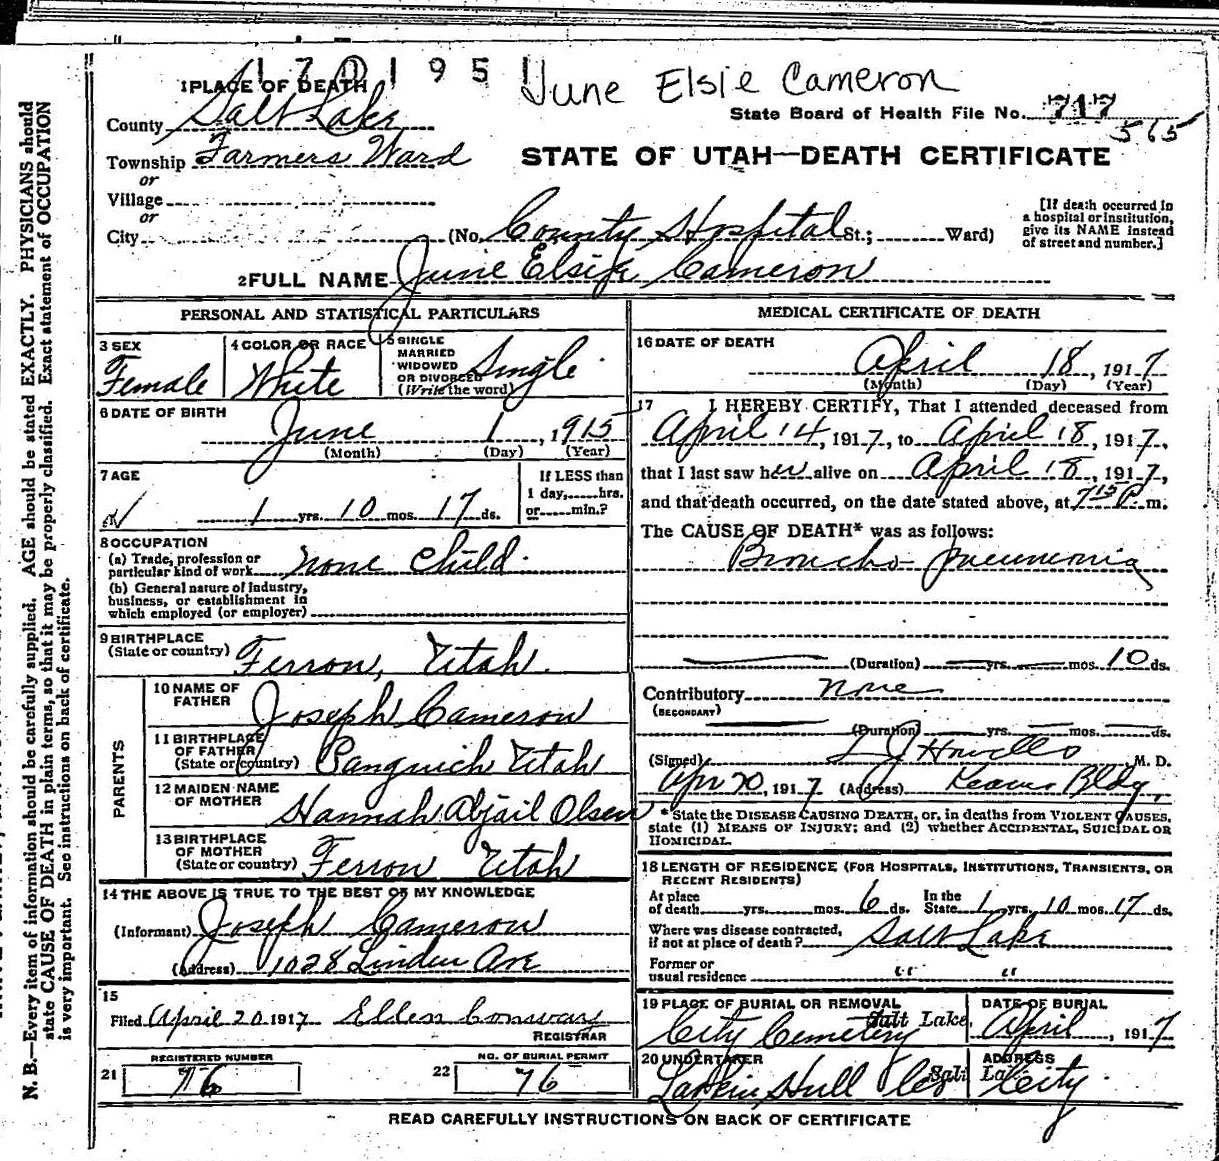 1701951 June Elsie Cameron
1 PLACE OF DEATH
County Salt Lake
State Board of Health File No. 717
565
Township Farmers Ward
STATE OF UTAH—DEATH CERTIFICATE
or
Village
or
City (No. County Hospital St.; Ward)
[If death occurred in
a hospital or institution,
give its NAME instead
of street and number.]
2 FULL NAME June Elsie Cameron
PERSONAL AND STATISTICAL PARTICULARS
3 SEX
Female
4 COLOR OR RACE
White
5 SINGLE
MARRIED
WIDOWED
OR DIVORCED
(Write the word)
Single
6 DATE OF BIRTH
June 1, 1915
(Month) (Day) (Year)
7 AGE
1 yrs. 10 mos. 17 ds.
If LESS than
1 day, hrs.
or min.?
8 OCCUPATION
(a) Trade, profession or
particular kind of work None Child
(b) General nature of industry,
business, or establishment in
which employed (or employer)
9 BIRTHPLACE
(State or country) Ferron, Utah.
PARENTS
10 NAME OF
FATHER Joseph Cameron
11 BIRTHPLACE
OF FATHER
(State or country) Panguich Utah
12 MAIDEN NAME
OF MOTHER Hannah Abjail Olsen
13 BIRTHPLACE
OF MOTHER
(State or country) Ferron Utah
14 THE ABOVE IS TRUE TO THE BEST OF MY KNOWLEDGE
(Informant) Joseph Cameron
(Address) 1028 Linden Ave
15
Filed April 20 1917 Ellen Conway
REGISTRAR
REGISTERED NUMBER
21 76
NO. OF BURIAL PERMIT
22 76
MEDICAL CERTIFICATE OF DEATH
16 DATE OF DEATH
April 18, 1917
(Month) (Day) (Year)
17 I HEREBY CERTIFY, That I attended deceased from
April 14, 1917, to April 18, 1917,
that I last saw her alive on April 18, 1917,
and that death occurred, on the date stated above, at 7 15 P m.
The CAUSE OF DEATH* was as follows:
Broncho pneumonia
(Duration) yrs. mos. 10 ds.
Contributory none
(SECONDARY)
(Duration) yrs. mos. ds.
(Signed) L J Howells M. D.
Apr 20, 1917 (Address) Kearns Bldg.
* State the DISEASE CAUSING DEATH, or, in deaths from VIOLENT CAUSES,
state (1) MEANS OF INJURY; and (2) whether ACCIDENTAL, SUICIDAL OR
HOMICIDAL.
18 LENGTH OF RESIDENCE (FOR HOSPITALS, INSTITUTIONS, TRANSIENTS, OR
RECENT RESIDENTS)
At place
of death yrs. mos. 6 ds. In the
State 1 yrs. 10 mos. 17 ds.
Where was disease contracted,
if not at place of death? Salt Lake
Former or
usual residence " "
19 PLACE OF BURIAL OR REMOVAL
City Cemetery Salt Lake.
DATE OF BURIAL
April, 1917
20 UNDERTAKER
Larkin, Hull Co
ADDRESS
Salt Lake City.
READ CAREFULLY INSTRUCTIONS ON BACK OF CERTIFICATE
N. B.—Every item of information should be carefully supplied. AGE should be stated EXACTLY. PHYSICIANS should
state CAUSE OF DEATH in plain terms, so that it may be properly classified. Exact statement of OCCUPATION
is very important. See instructions on back of certificate.